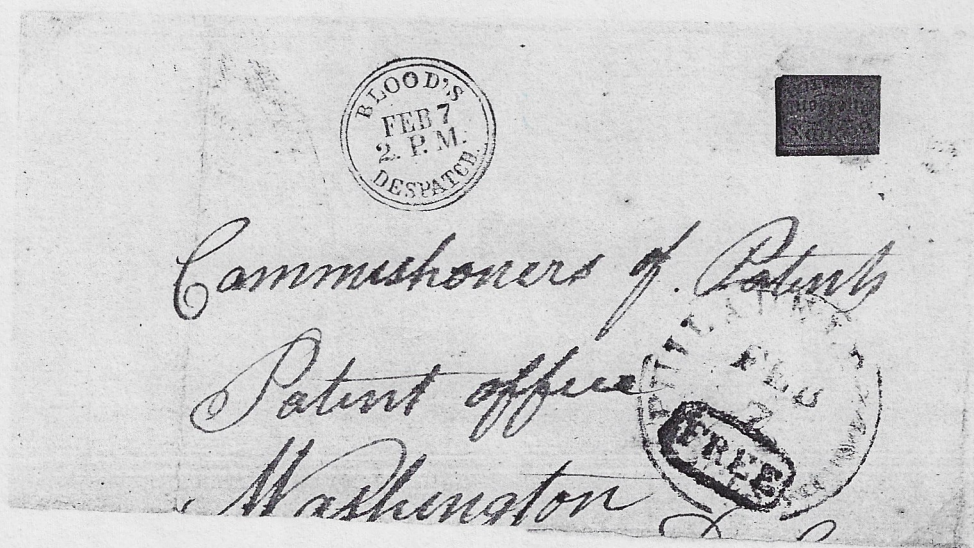 BLOOD'S
FEB 7
2. P. M.
DESPATCH.
Commissioners of Patents
Patent office
Washington
FEB
7
FREE